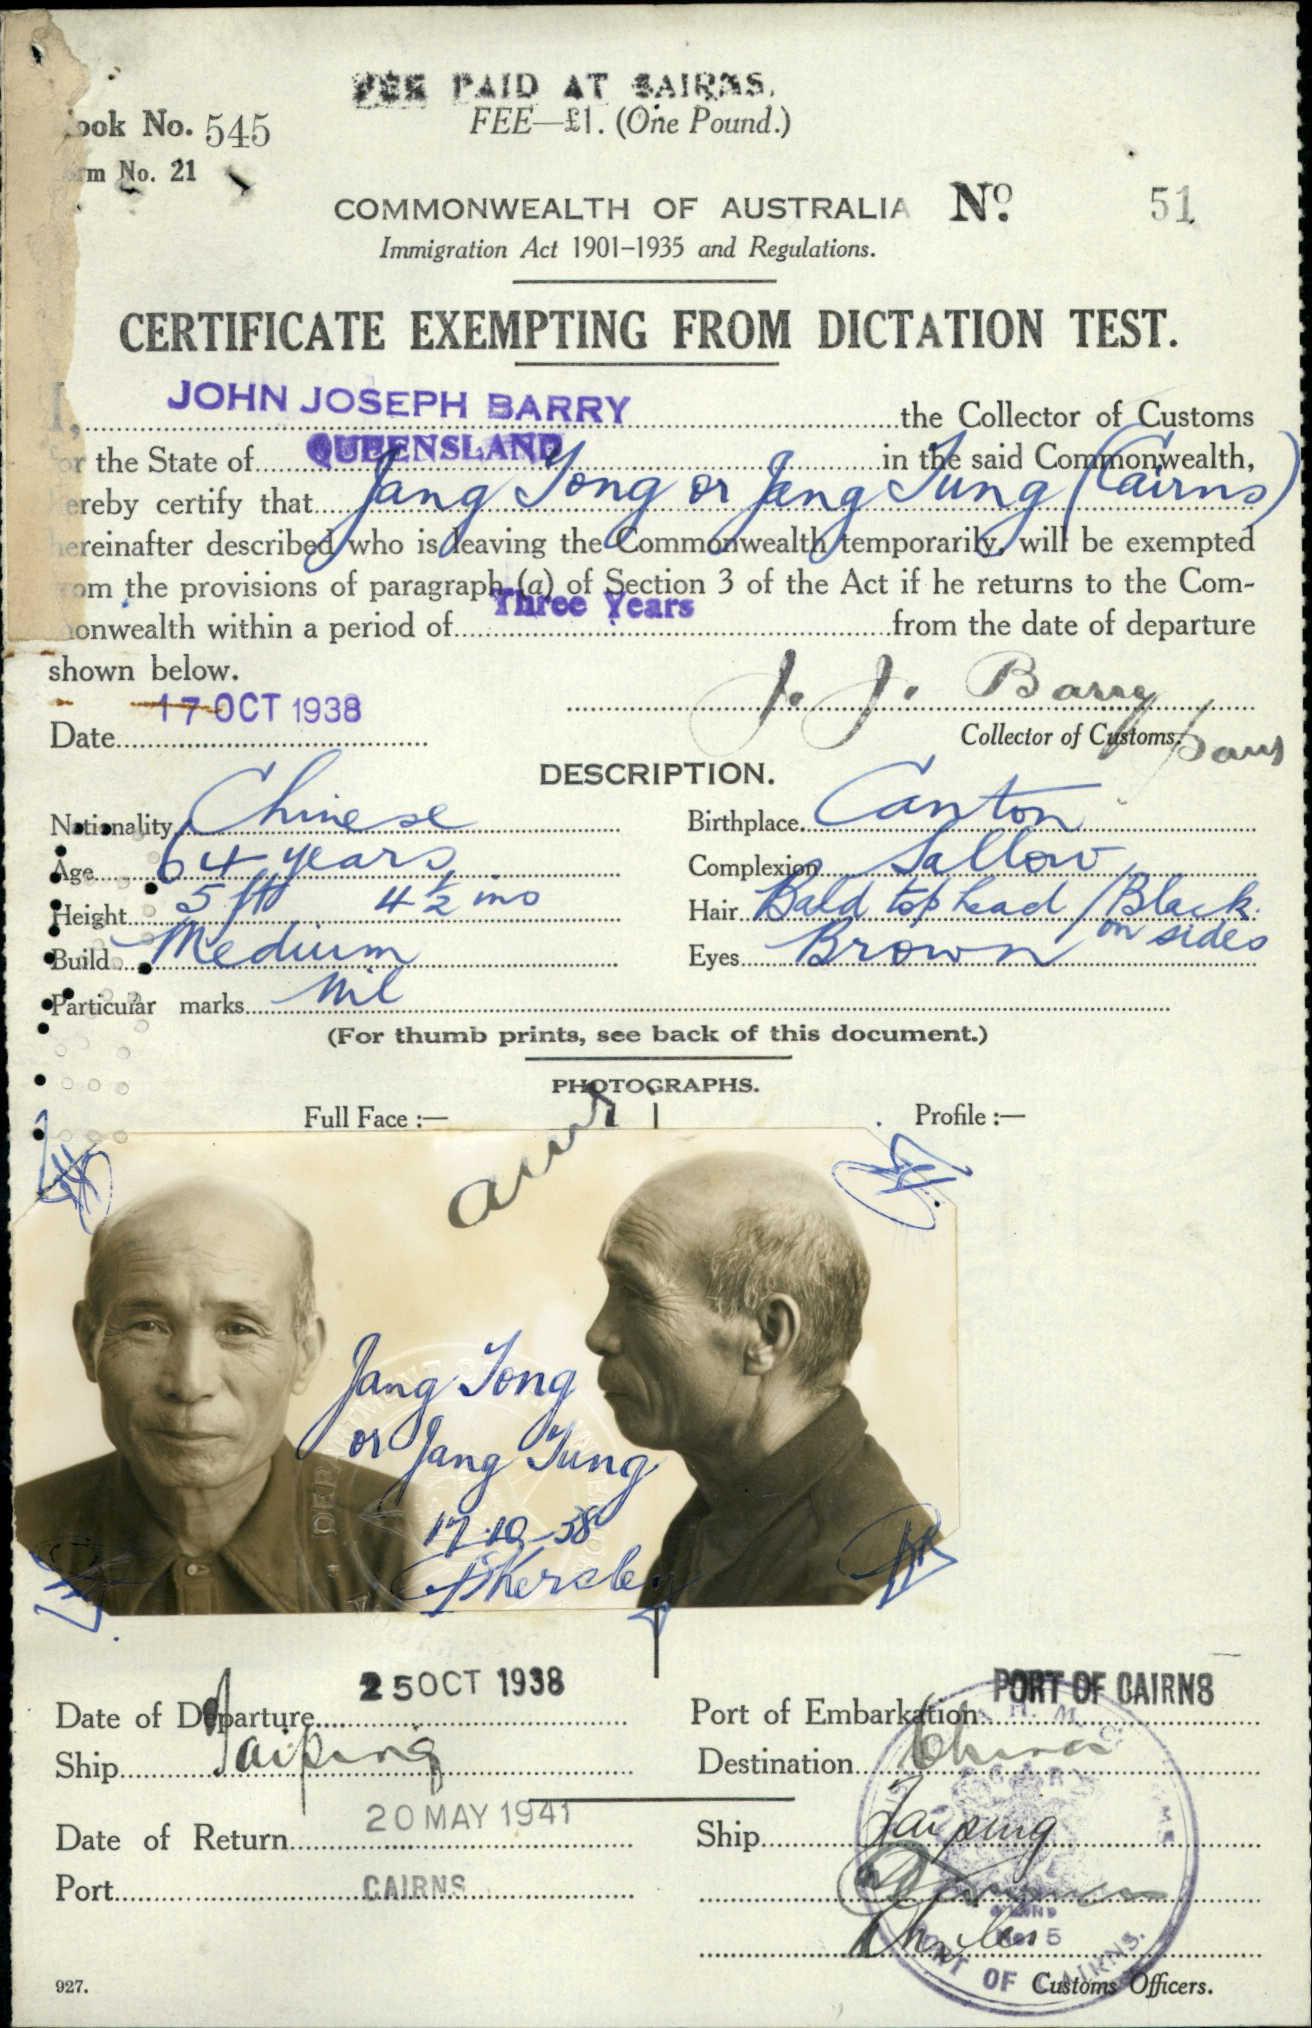 FEE PAID AT CAIRNS.
ook No. 545
FEE—£1. (One Pound.)
rm No. 21
COMMONWEALTH OF AUSTRALIA No. 51
Immigration Act 1901–1935 and Regulations.
CERTIFICATE EXEMPTING FROM DICTATION TEST.
I, JOHN JOSEPH BARRY the Collector of Customs
for the State of QUEENSLAND in the said Commonwealth,
hereby certify that Jang Tong or Jang Tung (Cairns)
hereinafter described who is leaving the Commonwealth temporarily, will be exempted
from the provisions of paragraph (a) of Section 3 of the Act if he returns to the Com-
monwealth within a period of Three Years from the date of departure
shown below.
J. J. Barry
Date 17 OCT 1938
Collector of Customs.
DESCRIPTION.
Nationality Chinese Birthplace Canton
Age 64 years Complexion Sallow
Height 5 ft 4½ ins Hair Bald top head / Black on sides
Build Medium Eyes Brown
Particular marks Nil
(For thumb prints, see back of this document.)
PHOTOGRAPHS.
Full Face :— Profile :—
Jang Tong
or Jang Tung
17-10-38
Kersley
Date of Departure 25 OCT 1938 Port of Embarkation PORT OF CAIRNS
Ship Taiping Destination China
Date of Return 20 MAY 1941 Ship Taiping
Port CAIRNS
PORT OF CAIRNS.
Customs Officers.
927.